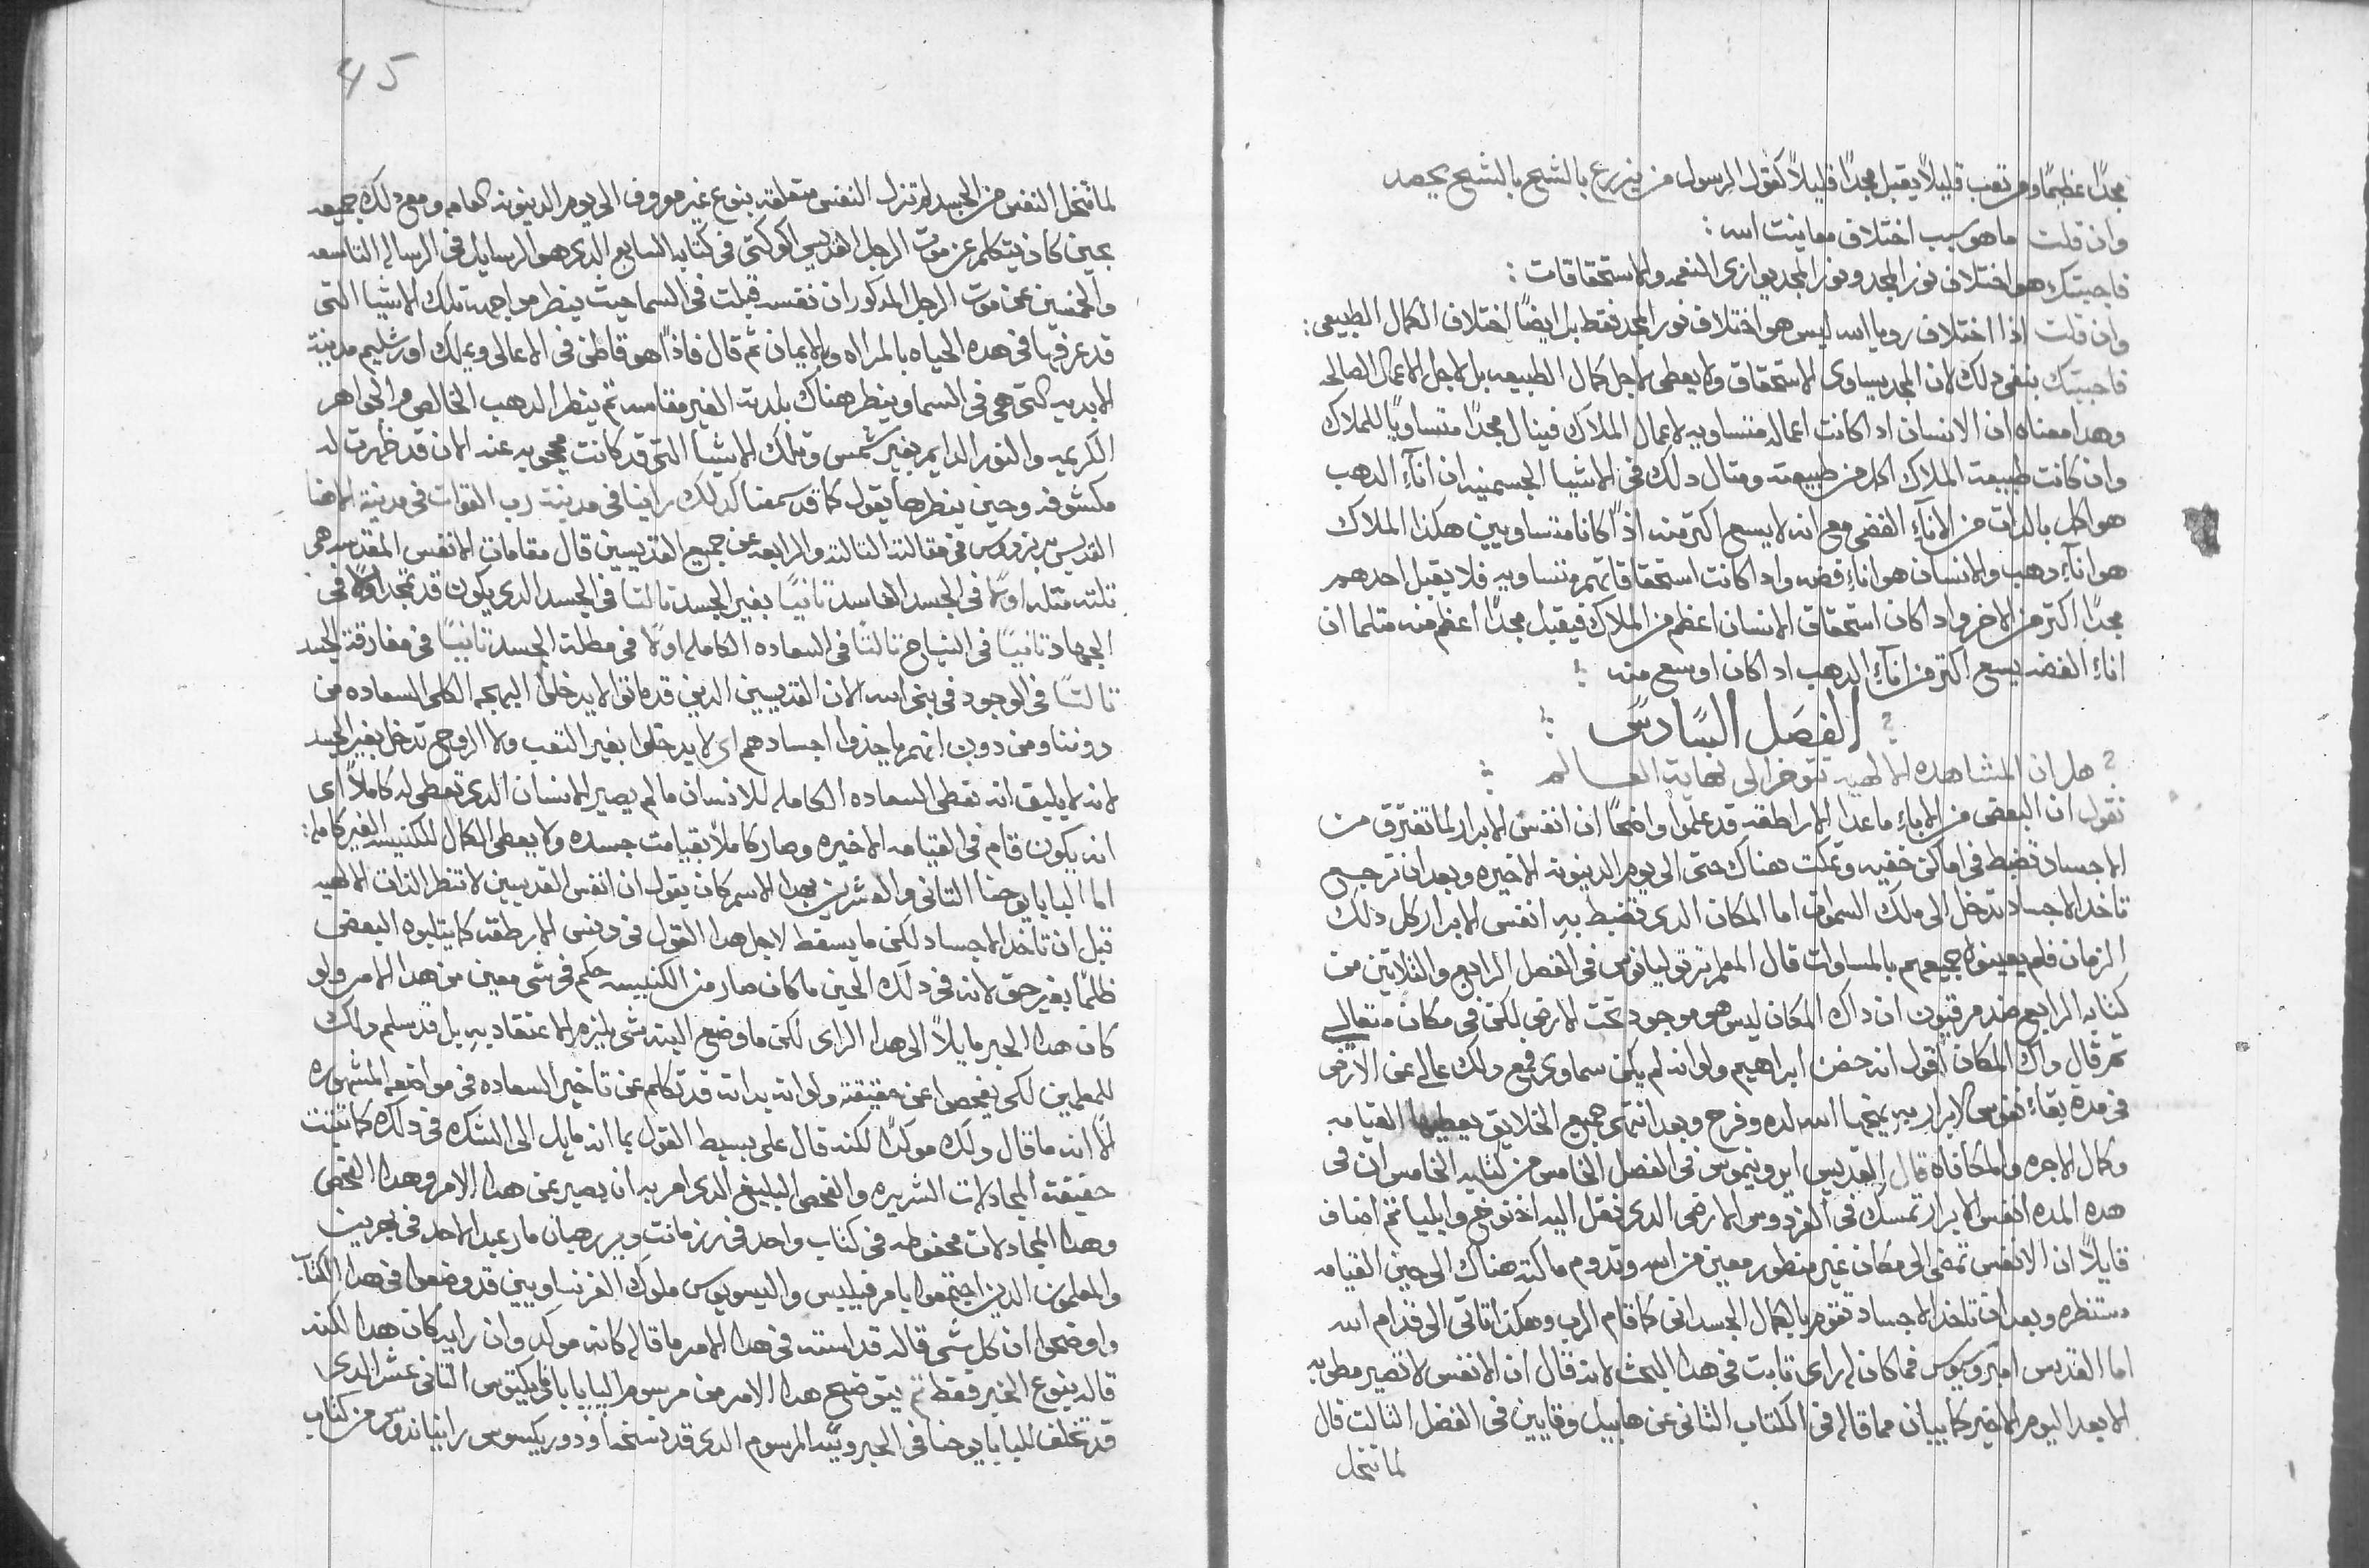 مجدًا عظيمًا ومن تعب قليلاً يقبل مجدًا قليلاً كقول الرسول من يزرع بالشح بالشح يحصد
وان قلت ما هو سبب اختلاف معاينت الله :
فاجبتك هو اختلاف نور المجد ونور المجد يوازى النعمه والاستحقاقات :
وان قلت اذا اختلاف رويا الله ليس هو اختلاف نور المجد فقط بل ايضًا اختلاف الكمال الطبيعى :
فاجبتك بنفى دلك لان المجد يساوى الاستحقاق ولا يعطى لاجل كمال الطبيعه بل لاجل الاعمال الصالحه
وهدا معناه ان الانسان ادا كانت اعماله متساويه لاعمال الملاك فينال مجدًا متساويًا للملاك
وان كانت طبيعة الملاك اكمل من طبيعته ومتال دلك فى الاشيا الجسمنيه ان انآءِ الدهب
هو اكمل بالدات من الانآءِ الفضى مع انه لا يسع اكتر منه اذًا كانا متساويين هكذا الملاك
هو انآءِ دهب والانسان هو اناءِ فضه وادا كانت استحقاقاتهم متساويه فلا يقبل احدهم
مجدًا اكتر من الاخر وادا كان استحقاق الانسان اعظم من الملاك فيقبل مجدًا اعظم منه متلما ان
اناءِ الفضه يسع اكتر من انآءِ الدهب ادا كان اوسع منه :
الفصل السادس
هل ان المشاهده الالهيه تتوخر الى نهاية العالم
نقول ان البعض من الاباءِ ماعدا الاراطقه قد علموا واضحًا ان انفس الابرار لما تفترق من
الاجساد تضبط فى اماكن خفيه وتمكت هناك حتى الى يوم الدينونه الاخيره وبعد ان ترجع
تاخد الاجساد تدخل الى ملك السموات اما المكان الدى تضبط به انفس الابرار كل دلك
الزمان فلم يعينواه جميعهم بالمساوات قال المعلم ترتوليانوس فى الفصل الرابع والثلاتين من
كتابه الرابع ضد مرقيون ان داك المكان ليس هو موجود تحت الارض لكن فى مكان متعالي
تم قال داك المكان اقول انه حضن ابراهيم ولو انه لم يكن سماوى فمع دلك عالى عن الارض
فى مدة بقاءِ نفوس الابرار به يمنحها الله لده وفرح وبعد انتهى جميع الخلايق يعطيها القيامه
وكمال الاجره والمكافاه قال القديس ايرونيموس فى الفصل الخامس من كتابه الخامس ان فى
هده المده انفس الابرار تمسك فى الفردوس الارضى الدى نقل اليه اخنوخ وايليا تم اضاف
قايلاً ان الانفس تمضى الى مكان غير منظور معين من الله وتدوم ماكته هناك الى حين القيامه
منتظره وبعد ان تاخد الاجساد تقوم بالكمال الجسدانى كما قام الرب وهكذا تاتى الى قدام الله
اما القديس امبروسيوس فما كان له راى تابت فى هدا البحث لانه قال ان الانفس لا تصير مطوبه
الا بعد اليوم الاخير كما يبان مما قاله فى الكتاب التانى عن هابيل وقايين فى الفصل التالت قال
لما تنحل
45
لما تنحل النفس من الجسد لم تزل النفس متعلقه بنوع غير معروف الى يوم الدينونه العامه ومع دلك جميعه
بحين كان يتكلم عن موت الرجل القديس فى كتابه السابع الدى هو الرسايل فى الرساله التاسعه
والخمسين عن موت الرجل المدكور ان نفسه قبلت فى السما حيث ينظر مواجهه تلك الاشيا التى
قد عرفها فى هده الحياه بالمراه والايمان تم قال فاذًا هو قاطن فى الاعالى ويملك اورشليم مدينة
الابديه التى هى فى السما وينظر هناك بلدته الغير مقاسه تم ينظر الدهب الخالص والجواهر
الكريمه والنور الدايم بغير شمس وتلك الاشيا التى قد كانت محجوبه عنه الان قد ظهرت له
مكشوفه وحين ينظرها يقول كما قد سمعنا كدلك راينا فى مدينة رب القوات فى مدينة الاهنا
القديس فى مقالته التالته والرابعه عن جميع القديسين قال مقامات الانفس المقدسه هى
تلته متله اولاً فى الجسد الفاسد تانيًا بغير الجسد تالتا فى الجسد الدى يكون قد تمجد اولاً فى
الجهاد تانيًا فى النياح تالتًا فى السعاده الكامله اولاً فى مظلة الجسد تانيًا فى مفارقة الجسد
تالتًا فى الوجود فى بنى الله لان القديسين الدين قد ماتوا لا يدخلوا البهجه الكلى السعاده من
دوننا ومن دون انهم ياخدوا اجسادهم اى لا يدخلوا بغير التعب ولا الروح تدخل بغير الجسد
لانه لا يليق انه تعطى السعاده الكامله للانسان ما لم يصير الانسان الدى تعطى له كاملاً اى
انه يكون قام فى القيامه الاخيره وصار كاملاً بقيامت جسده ولا يعطى الكمال للكنيسه الغير كامله :
اما البابا يوحنا التانى والعشرين بهدا الاسم كان يقول ان انفس القديسين لا تنظر الذات الالهيه
قبل ان تاخد الاجساد لكن ما يسقط لاجل هدا القول فى دنس الارطقه كما يتلبوه البعض
ظلمًا بغير حق لانه فى دلك الحين ما كان صار من الكنيسه حكم فى شى معين من هدا الامر ولو
كان هدا الحبر مايلاً الى هدا الراى لكن ما وضع البته شى يلزم الاعتقاد به بل قد سلم دلك
للمعلمين لكى يفحصوا عن حقيقته ولو انه بداته قد تكلم عن تاخير السعاده فى مواعظه المشهوره
الا انه ما قال دلك موكدًا لكنه قال على بسيط القول بما انه مايل الى الشك فى دلك كما تبتت
حقيقة المجادلات الشريره والفحص البليغ الدى امر به ان يصير عن هدا الامر وهدا الفحص
وهدا المجادلات محفوظه فى كتاب واحد فى
والمعلمون الدين اجتمعوا بامر فيليبس ملوك الفرنساويين قد وضعوا فى هدا الكتاب
واوضحوا ان كل شى قاله قداسته فى هدا الامر ما قاله كانه موكد وان رايه كان هدا لكنه
قاله بنوع الخبر فقط تم يتوضح هدا الامر من مرسوم البابا بناديكتوس التانى عشر الدى
قد تخلف للبابا يوحنا فى الحبرويه المرسوم الدى قد نسخه من كتاب